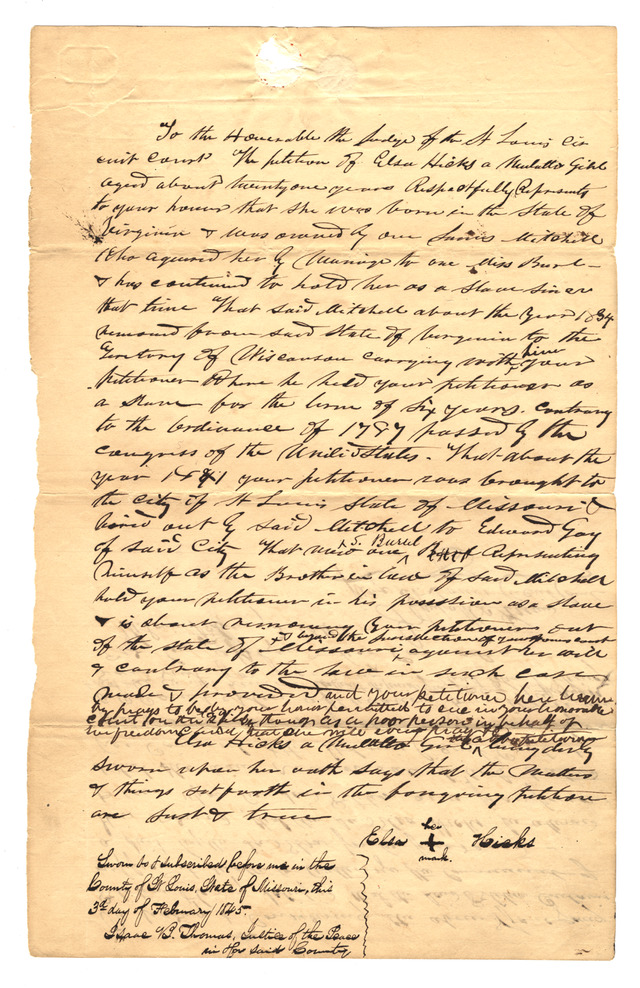 To the Honerable the Judge of the St Louis Cir
cuit Court The petition of Elsa Hicks a Mulatto Girl
aged about twentyone years Respectfully Represents
to your honour that she was born in the State of
Virginia & was owned by one Mitchell
Who aquired her by Marriage to one Miss
& has continued to hold her as a slave since
that time That said Mitchell about the year 1834
removed from said State of Virginia to the
Teretory of Wisconson carrying with him your
petitioner Where he held your petitioner as
a slave for the term of Six years. Contrary
to the Ordinance of 1787 passed by the
Congress of the United States. That about the
year 1841 your petitioner was brought to
the City of St Louis State of Missouri &
hired out by said Mitchell to Edward Gay
of said City That now one S. Burrel Representing
himself as the Brother in law of said Mitchell
hold your petitioner in his possession as a slave
& is about removing your petitioner out
of the state of Missouri & beyond the jurisdiction of your honours court against her will
& contrary to the law in such case
made & provided and your petitioner here
by prays to be by your honour permitted to sue in your honorable
court as a poor person in behalf of
her freedom and that she will ever pray &c
Elsa Hicks a Mulatto Girl being duly
sworn upon her oath says that the Matters
& things set forth in the foregoing petition
are Just & true
Elsa her + mark. Hicks
Sworn to & subscribed before me in the
County of St Louis, State of Missouri, this
3rd day of February 1845.
Isaac Thomas, Justice of the Peace
in & for said County